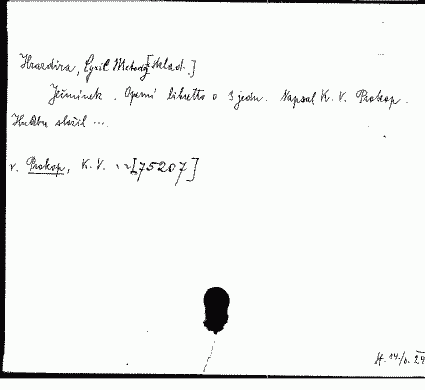 Hrazdira, Cyril Metoděj [sklad.]
Ječmínek. Operní libretto o 3 jedn. Napsal K. V. Prokop.
Hudbu složil ...
v. Prokop, K. V. [75207]